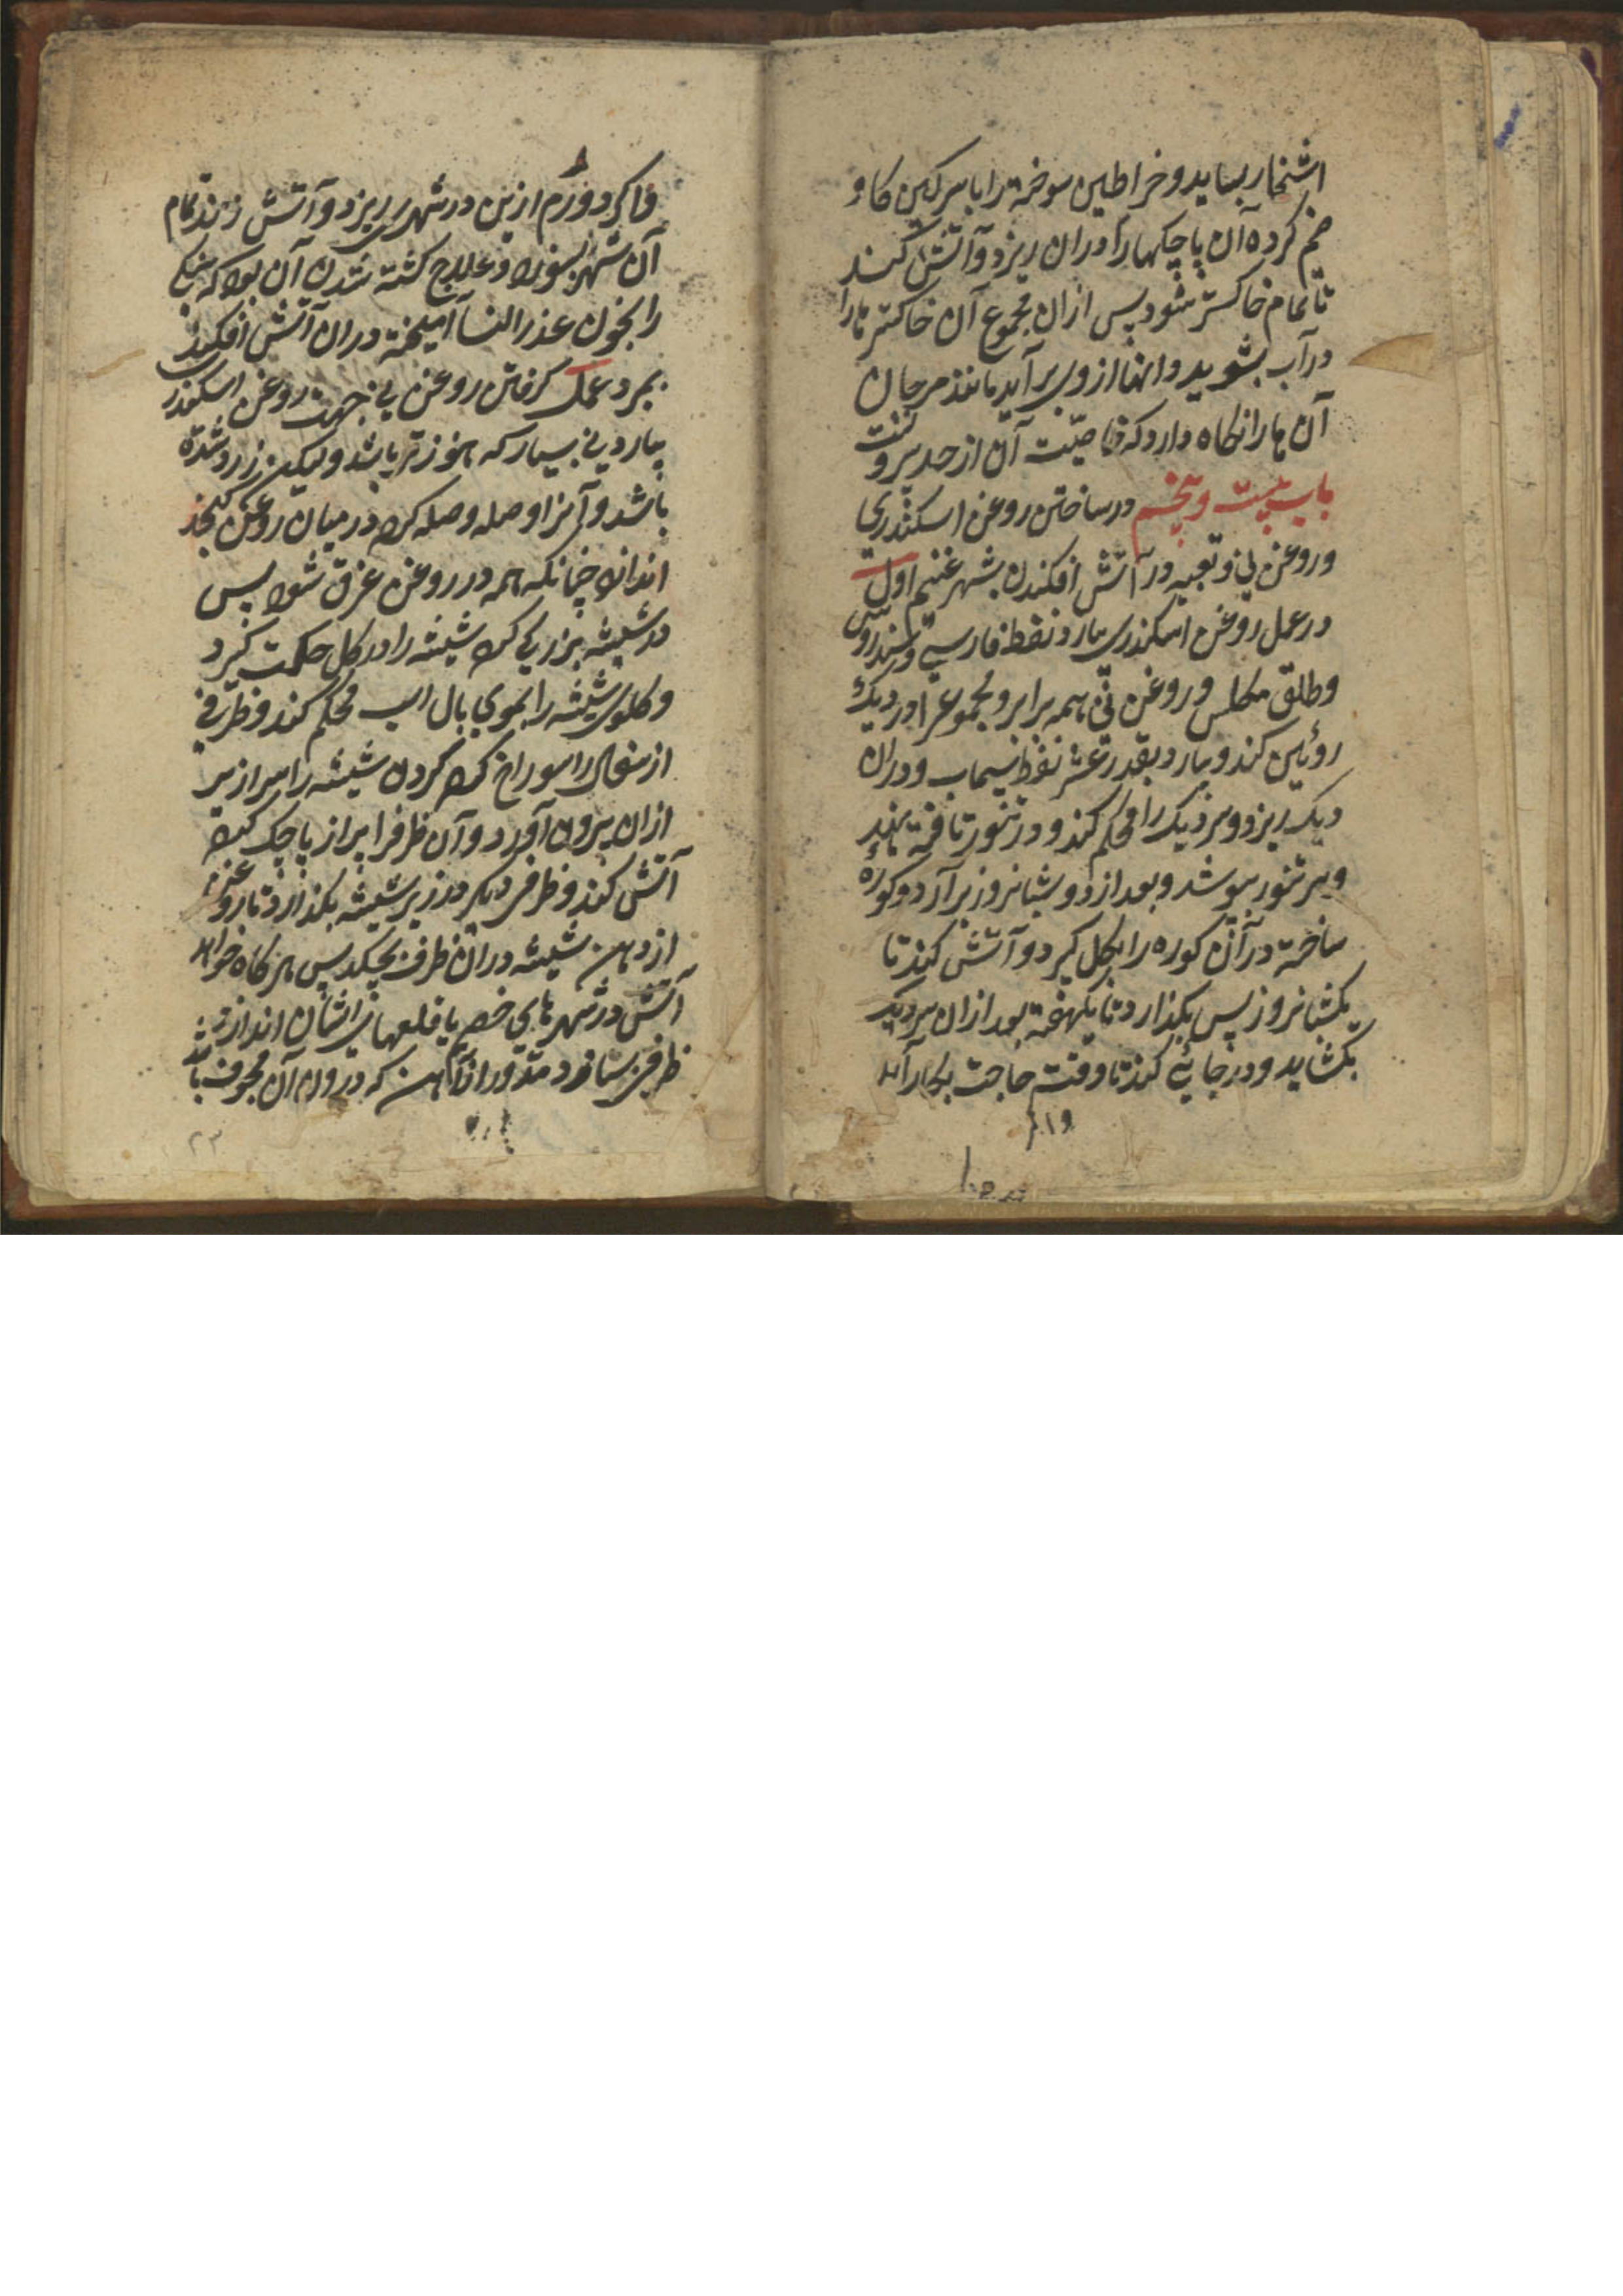 اشنخار بساید و خراطین سوخته را با سرکین کاو
ضم کرده آن پاچکها را دران ریزد و آتش کند
تا تمام خاکستر شود پس ازان مجموع آن خاکستر تا را
در آب بشوید وانها ازوی برآید مانند مرجان
آن ها را نکاه دارد که خاصیّت آن از حد بیرونست
باب بیست و پنجم در ساختن روغن اسکندری
و روغن نی و تعبیه در آتش افکندن بشهر غنیم اول
در عمل روغن اسکندری بیارد نفط فارسی و سندروس
و طلق مکلس و روغن نی همه برابر و مجموع را در دیک
روئین کند و بیارد بقدر عشر نفط سیماب و دران
دیک ریزد و سر دیک را محکم کند و در تنور تافته نهد
و سر تنور بپوشد و بعد از دو شبانروز برآرد و کوره
ساخته در آن کوره را بکل کیرد و آتش کند تا
یکشبانروز پس بکذارد تا یکهفته بعد ازان سر دیک
بکشاید و در جائے کند تا وقت حاجت بکار آید
وکرد ورم ازین در شهری ریزد و آتش زند تمام
آن شهر بسوزد و علاج کشته شدن آن بود که سنکی
را بخون عذر النسا آمیخته دران آتش افکند
بمیرد عمل کرفتن روغن نی جهت روغن اسکندری
بیارد نی بسیار که هنوز تر باشد ولیکن زرد شده
باشد و آنرا وصله وصله کرده در میان روغن کنجد
اندازد چنانکه همه در روغن غرق شود پس
در شیشه بزرک کرده شیشه را در کل حکمت کیرد
و کلوی شیشه را بموی یال اسب محکم کند و ظرفی
از سفال را سوراخ کرده کردن شیشه را سرازیر
ازان بیرون آورد و آن ظرف را پر از پاچک کرده
آتش کند و ظرفی دیکر در زیر شیشه بکذارد تا روغن
از دهن شیشه دران ظرف بچکد پس هر کاه خواهد
آتش در شهر های خصم یا قلعهای ایشان اندازد
ظرفی بستاند مدّور از آهن که درون آن مجوف باشد
۲۳